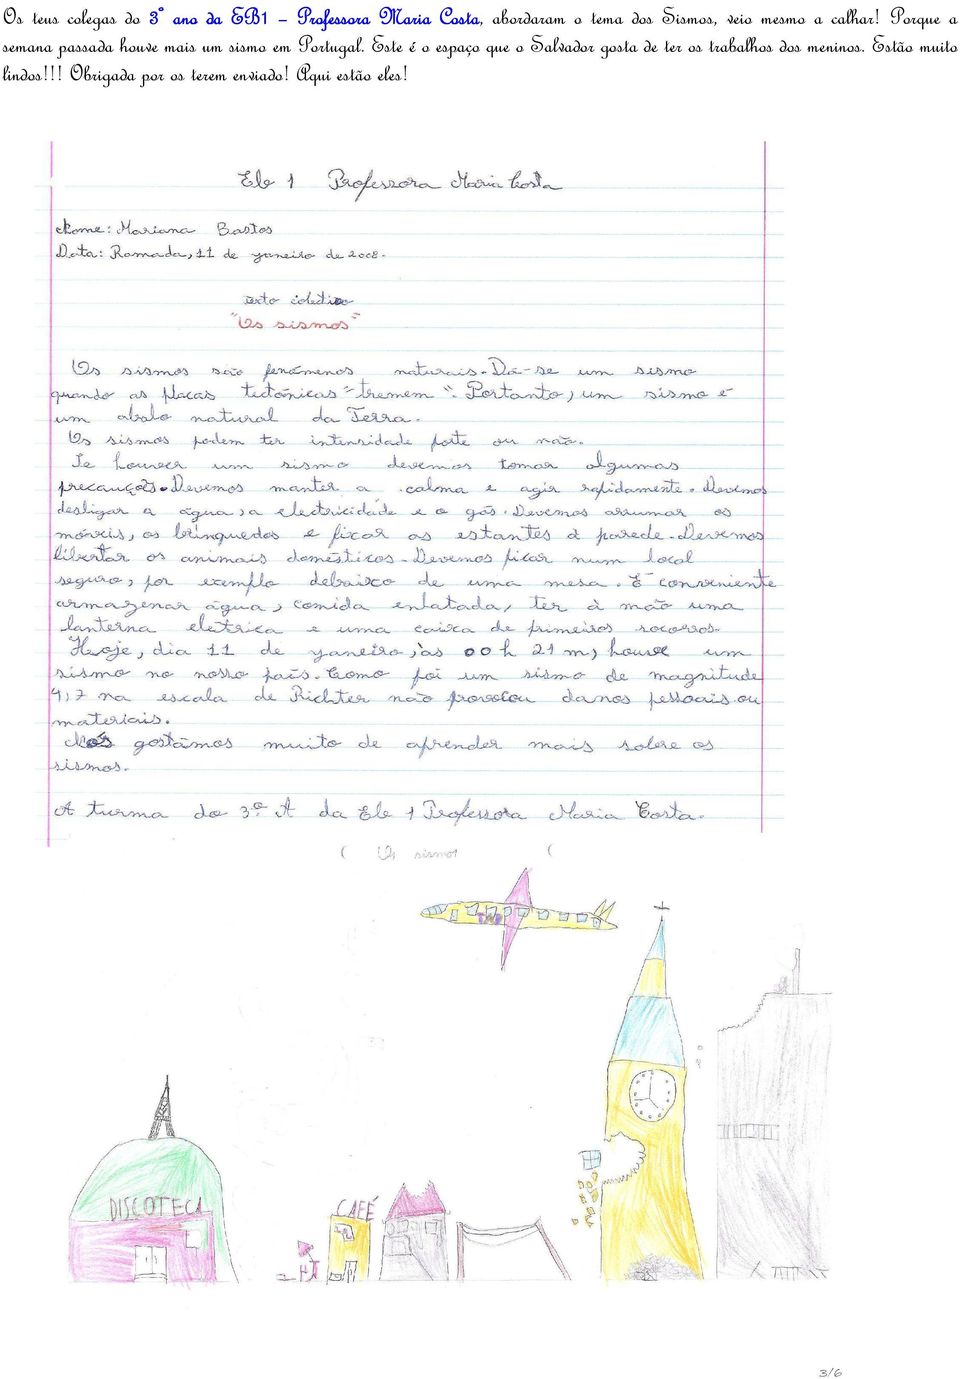 Os teus colegas do 3º ano da EB1 – Professora Maria Costa, abordaram o tema dos Sismos, veio mesmo a calhar! Porque a
semana passada houve mais um sismo em Portugal. Este é o espaço que o Salvador gosta de ter os trabalhos dos meninos. Estão muito
lindos!!! Obrigada por os terem enviado! Aqui estão eles!
Eb 1 Professora Maria Costa
Nome: Mariana Bastos
Data: Ramada, 11 de janeiro de 2008.
texto coletivo
"Os sismos"
Os sismos são fenómenos naturais. Dá-se um sismo
quando as placas tectónicas "tremem". Portanto, um sismo é
um abalo natural da Terra.
Os sismos podem ter intensidade forte ou não.
Se houver um sismo devemos tomar algumas
precauções. Devemos manter a calma e agir rapidamente. Devemos
desligar a água, a electricidade e o gás. Devemos arrumar os
móveis, os brinquedos e fixar as estantes à parede. Devemos
libertar os animais domésticos. Devemos ficar num local
seguro, por exemplo debaixo de uma mesa. É conveniente
armazenar água, comida enlatada, ter à mão uma
lanterna eletrica e uma caixa de primeiros socorros.
Hoje, dia 11 de janeiro, às 00 h 21 m, houve um
sismo no nosso país. Como foi um sismo de magnitude
4,7 na escala de Richter não provocou danos pessoais ou
materiais.
Nós gostámos muito de aprender mais sobre os
sismos.
A turma do 3º A da Eb 1 Professora Maria Costa.
( Os sismos (
TAP
DISCOTECA
CAFÉ
3/6